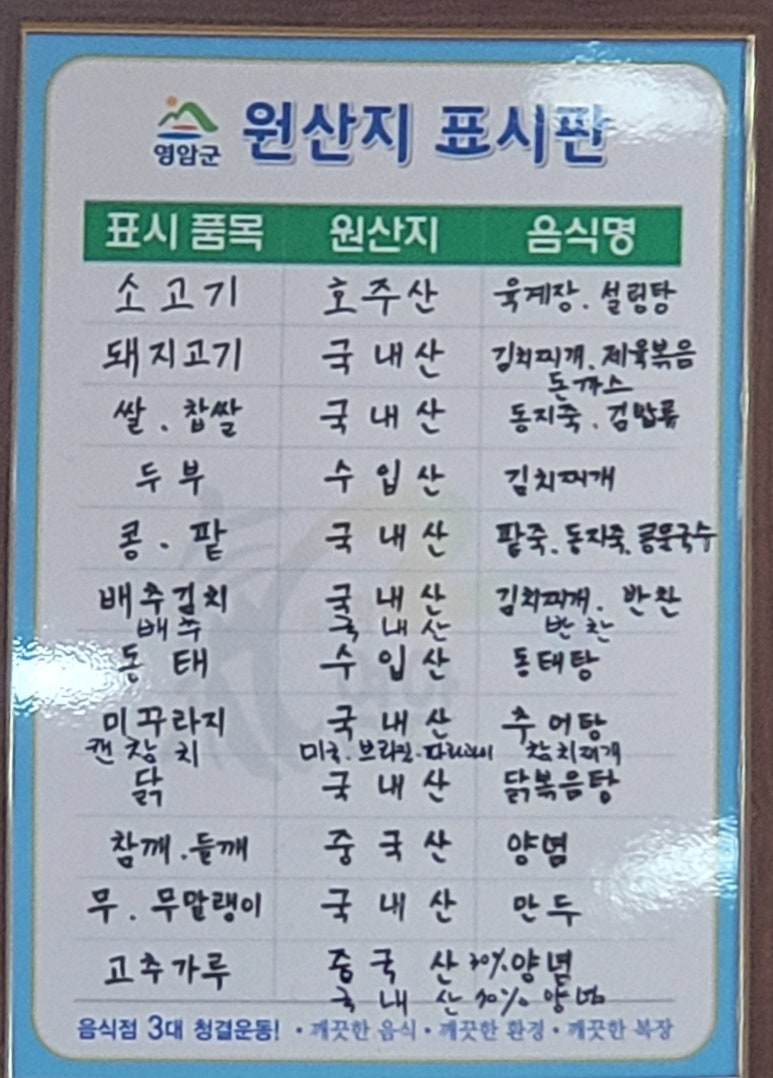 영암군 원산지 표시판
표시 품목 원산지 음식명
소고기 호주산 육계장. 설렁탕
돼지고기 국내산 김치찌개. 제육볶음
돈까스
쌀. 찹쌀 국내산 동지죽. 김밥류
두부 수입산 김치찌개
콩. 팥 국내산 팥죽. 동지죽. 콩물국수
배추김치 국내산 김치찌개. 반찬
배추 국내산 반찬
동태 수입산 동태탕
미꾸라지 국내산 추어탕
캔참치 미국. 브라질. 참치찌개
닭 국내산 닭볶음탕
참깨. 들깨 중국산 양념
무. 무말랭이 국내산 만두
고추가루 중국산 양념
국내산 양념
음식점 3대 청결운동! • 깨끗한 음식 • 깨끗한 환경 • 깨끗한 복장